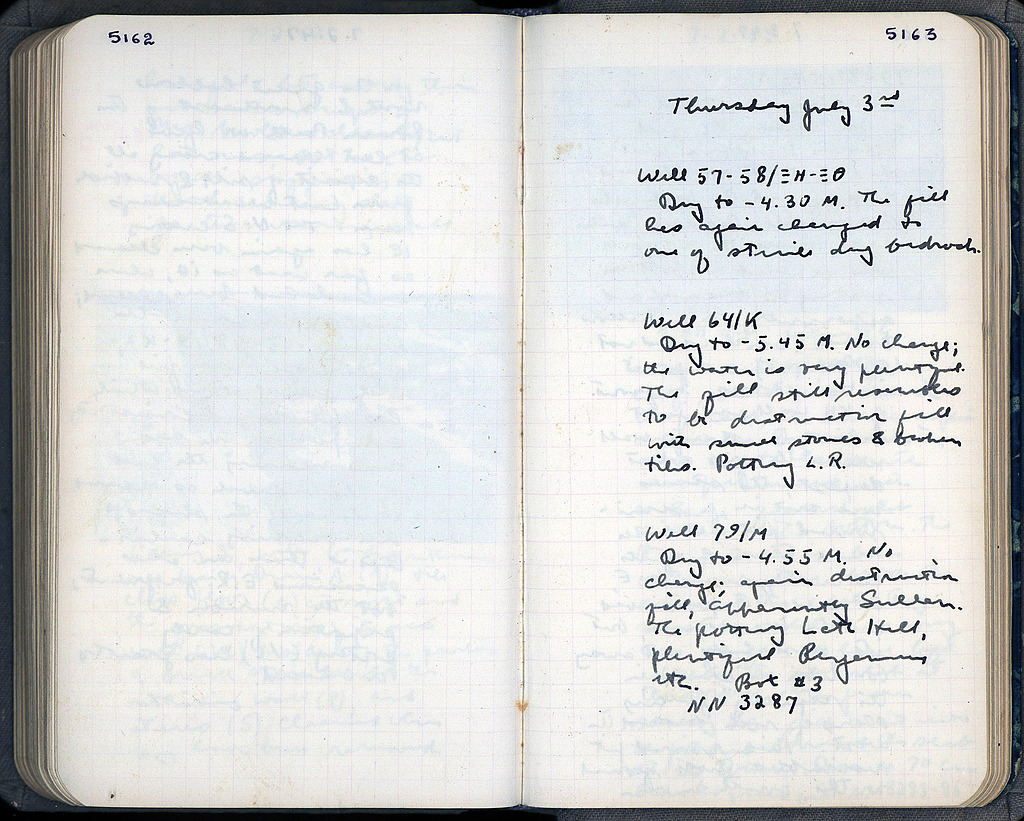 5162
5163
Thursday July 3rd
Well 57-58/ΞΗ-ΞΘ
Dug to -4.30 M. The fill
has again changed to
one of sterile dug bedrock.
Well 64/K
Dug to -5.45 M. No change;
the water is very plentiful.
The fill still resembles
to be destruction fill
with small stones & broken
tiles. Pottery L.R.
Well 79/M
Dug to -4.55 M. No
change; again destruction
fill, apparently Sullan.
The pottery Late Hell,
plentiful Pergamene
etc. Box #3
NN 3287